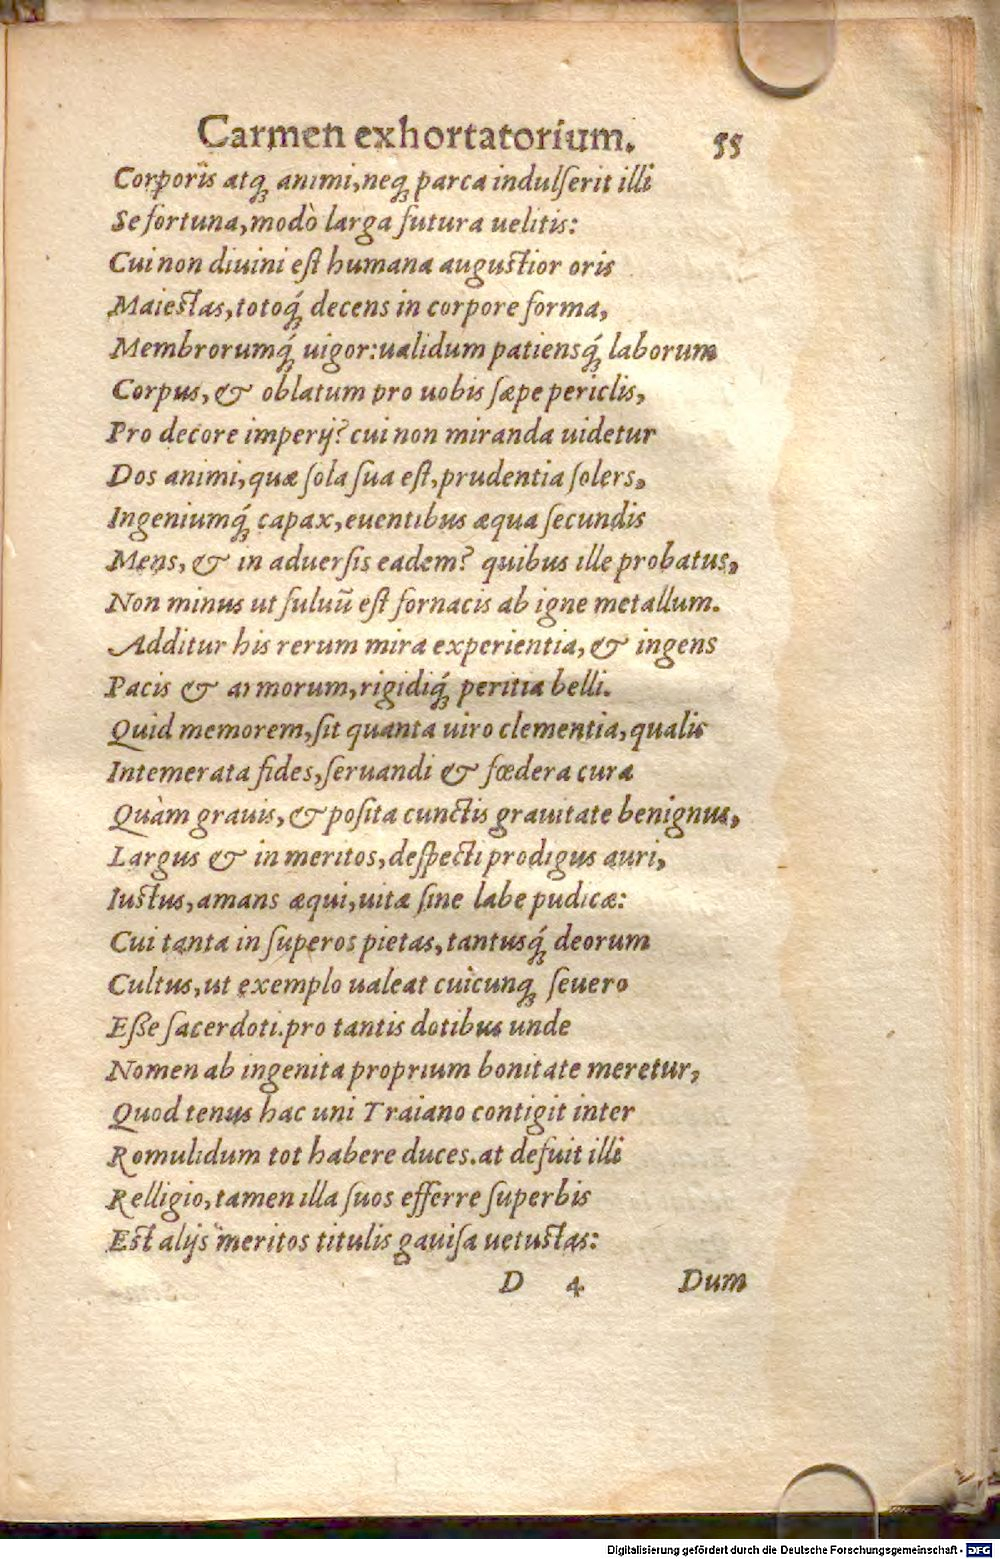 Carmen exhortatorium. 55
Corporis atq́ꝫ animi, neqꝫ parca indulſerit illi
Se fortuna, modò larga futura uelitis:
Cui non diuini eſt humana auguſtior oris
Maieſtas, totoq́ꝫ decens in corpore forma,
Membrorumq́ꝫ uigor: ualidum patiensq́ꝫ laborum
Corpus, & oblatum pro uobis ſæpe periclis,
Pro decore imperij? cui non miranda uidetur
Dos animi, quæ ſola ſua eſt, prudentia ſolers,
Ingeniumq́ꝫ capax, euentibus æqua ſecundis
Mens, & in aduerſis eadem? quibus ille probatus,
Non minus ut fuluū eſt fornacis ab igne metallum.
Additur his rerum mira experientia, & ingens
Pacis & armorum, rigidiq́ꝫ peritia belli.
Quid memorem, ſit quanta uiro clementia, qualis
Intemerata fides, ſeruandi & fœdera cura
Quàm grauis, & poſita cunctis grauitate benignus,
Largus & in meritos, deſpecti prodigus auri,
Iuſtus, amans æqui, uitæ ſine labe pudicæ:
Cui tanta in ſuperos pietas, tantusq́ꝫ deorum
Cultus, ut exemplo ualeat cuicunqꝫ ſeuero
Eße ſacerdoti. pro tantis dotibus unde
Nomen ab ingenita proprium bonitate meretur,
Quod tenus hac uni Traiano contigit inter
Romulidum tot habere duces. at defuit illi
Relligio, tamen illa ſuos efferre ſuperbis
Eſt alijs meritos titulis gauiſa uetuſtas:
D 4 Dum
Digitalisierung gefördert durch die Deutsche Forschungsgemeinschaft - DFG